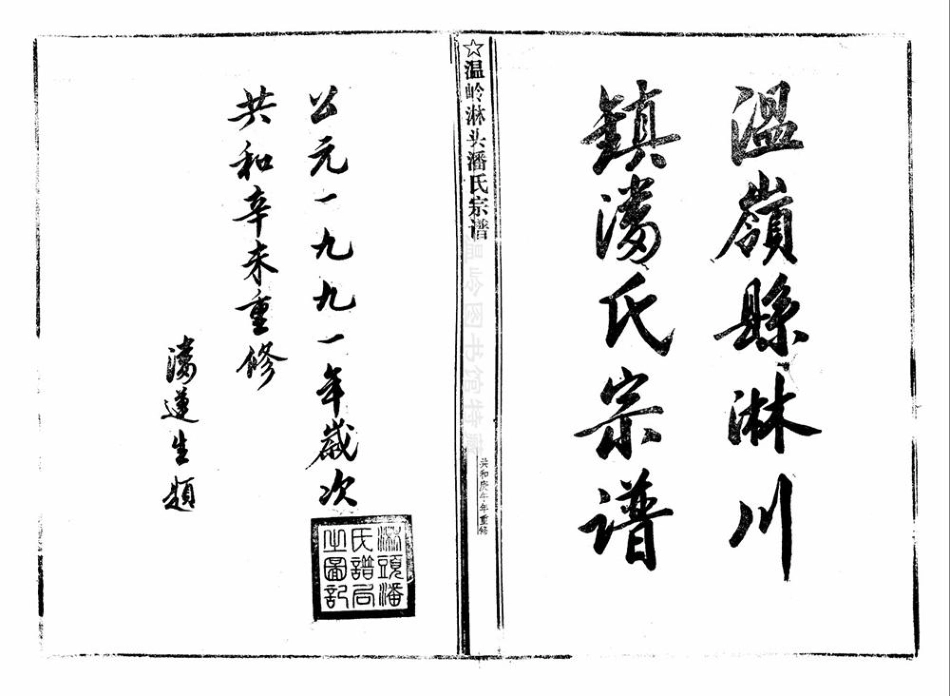 溫嶺縣淋川
鎮潘氏宗谱
☆温岭淋头潘氏宗谱
温岭图书馆特藏
共和庚午年重修
公元一九九一年歲次
共和辛未重修
潘蓮生題
淋頭潘
氏譜局
之圖記